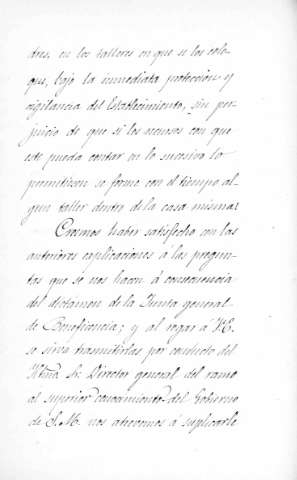 dres, en los talleres en que se los colo-
que, bajo la inmediata proteccion y
vigilancia del Establecimiento, sin per-
juicio de que si los recursos con que
este pueda contar en lo sucesivo lo
permitiesen se forme con el tiempo al-
gun taller dentro de la casa misma.
Creemos haber satisfecho con las
anteriores esplicaciones á las pregun-
tas que se nos hacen á consecuencia
del dictamen de la Junta general
de Beneficencia; y al rogar á V.E.
se sirva trasmitirlas por conducto del
Sr. Director general del ramo
al superior conocimiento del Gobierno
de S.M. nos atrevemos á suplicarle